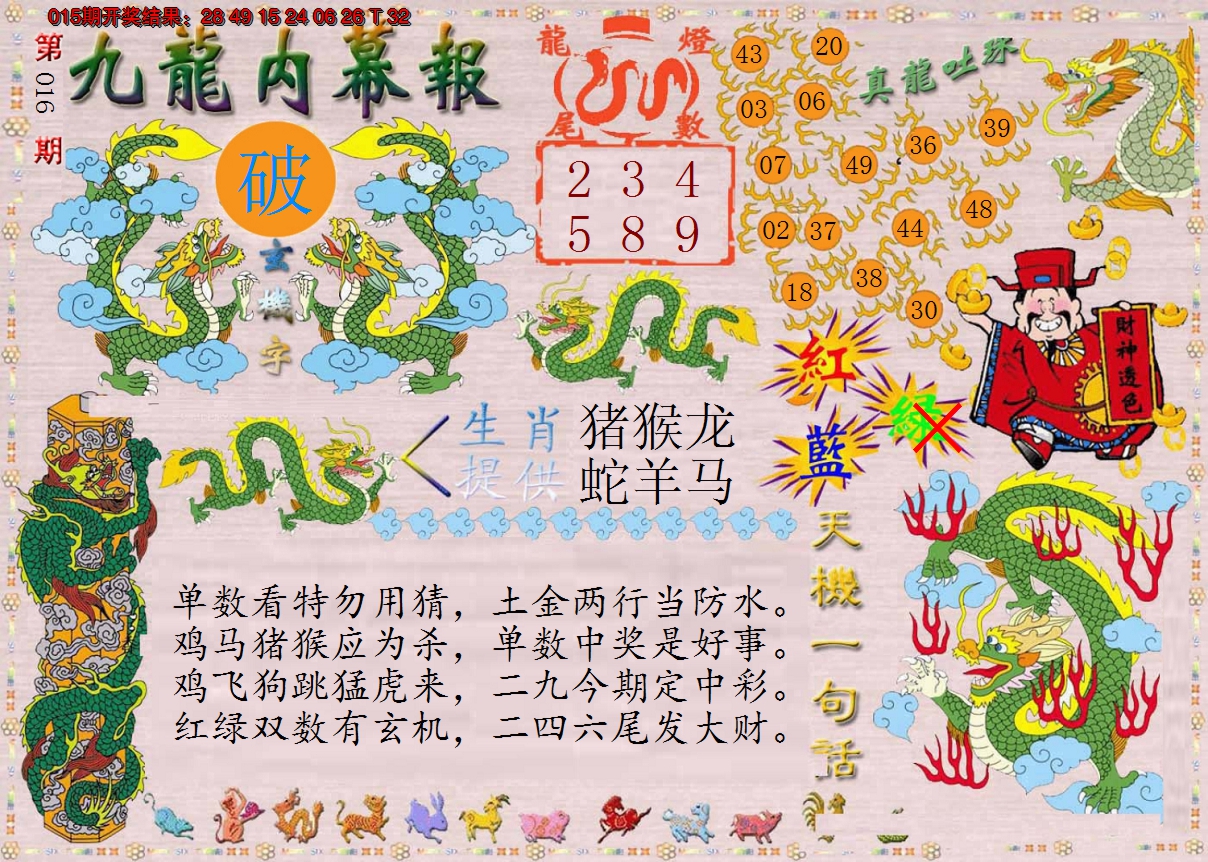 015期开奖结果：28 49 15 24 06 26 T 32
第016期
九龍内幕報
破
玄機字
龍燈
尾數
2 3 4
5 8 9
真龍吐珠
43 20
03 06
07 49 36 39
02 37 44 48
18 38 30
財神透色
紅
綠
藍
生肖 猪猴龙
提供 蛇羊马
天機一句話
单数看特勿用猜，土金两行当防水。
鸡马猪猴应为杀，单数中奖是好事。
鸡飞狗跳猛虎来，二九今期定中彩。
红绿双数有玄机，二四六尾发大财。